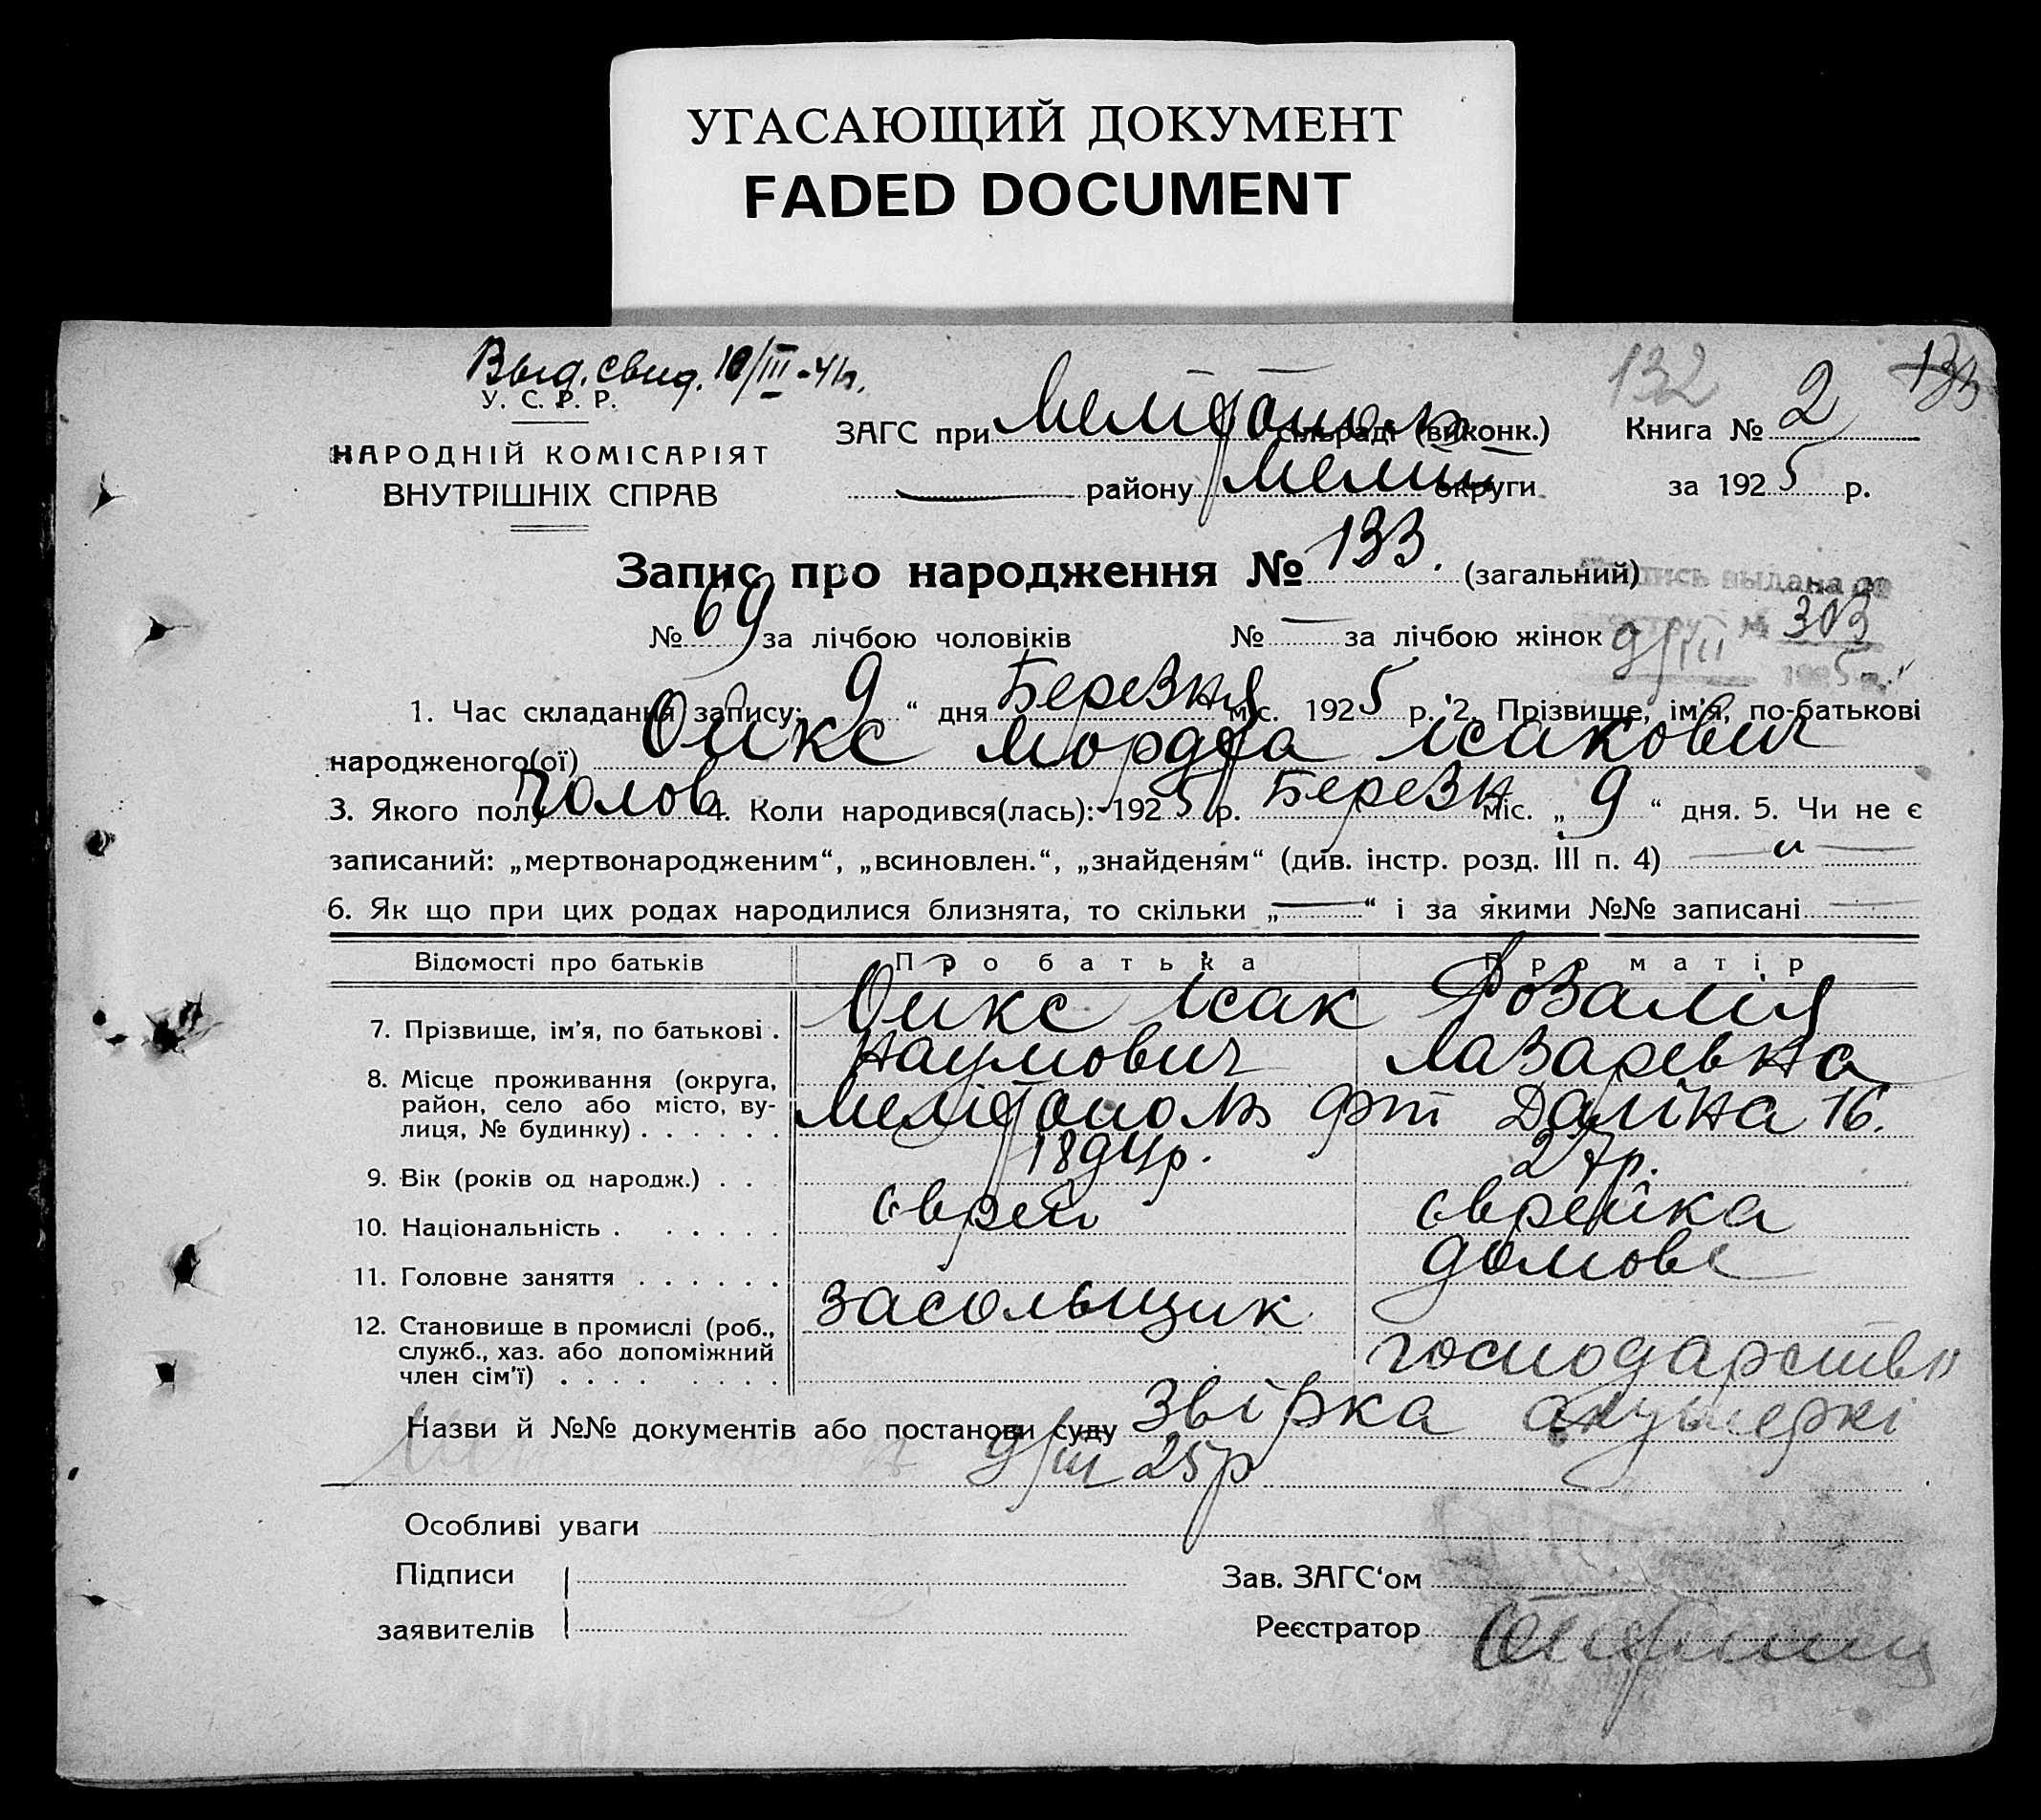 УГАСАЮЩИЙ ДОКУМЕНТ
FADED DOCUMENT
Выд. свид. 10/III-41г.
132
У. С. Р. Р.
НАРОДНІЙ КОМІСАРІЯТ
ВНУТРІШНІХ СПРАВ
ЗАГС при сільраді (виконк.)
району Меліт округи
Книга № 2
за 1925 р.
Запис про народження № 133. (загальний)
№ 69 за лічбою чоловіків № — за лічбою жінок
выдана
№ 303
9/III
1. Час складання запису: 9 “ дня Березня міс. 1925 р. 2. Прізвище, ім'я, по-батькові
народженого(ої) Мордха Ісакович
3. Якого полу чолов 4. Коли народився(лась): 1925 р. Березн міс. „ 9 “ дня. 5. Чи не є
записаний: „мертвонародженим“, „всиновлен.“, „знайденям“ (див. інстр. розд. III п. 4) — „ —
6. Як що при цих родах народилися близнята, то скільки „—“ і за якими №№ записані —
Відомості про батьків Про батька Про матір
7. Прізвище, ім'я, по батькові . Ісак Розалія
Наумович Лазаревна
8. Місце проживання (округа,
район, село або місто, ву-
лиця, № будинку) . . . . . . Мелітополь Даліна 16.
9. Вік (років од народж.) . . 1894р. 27р.
10. Національність . . . . . . єврей єврейка
11. Головне заняття . . . . . . домове
засольщик
12. Становище в промислі (роб.,
служб., хаз. або допоміжний
член сім'ї) . . . . . . . . господарство
Назви й №№ документів або постанови суду Звірка акушеркі
9/III 25р
Особливі уваги
Підписи
заявителів
Зав. ЗАГС‘ом
Реєстратор